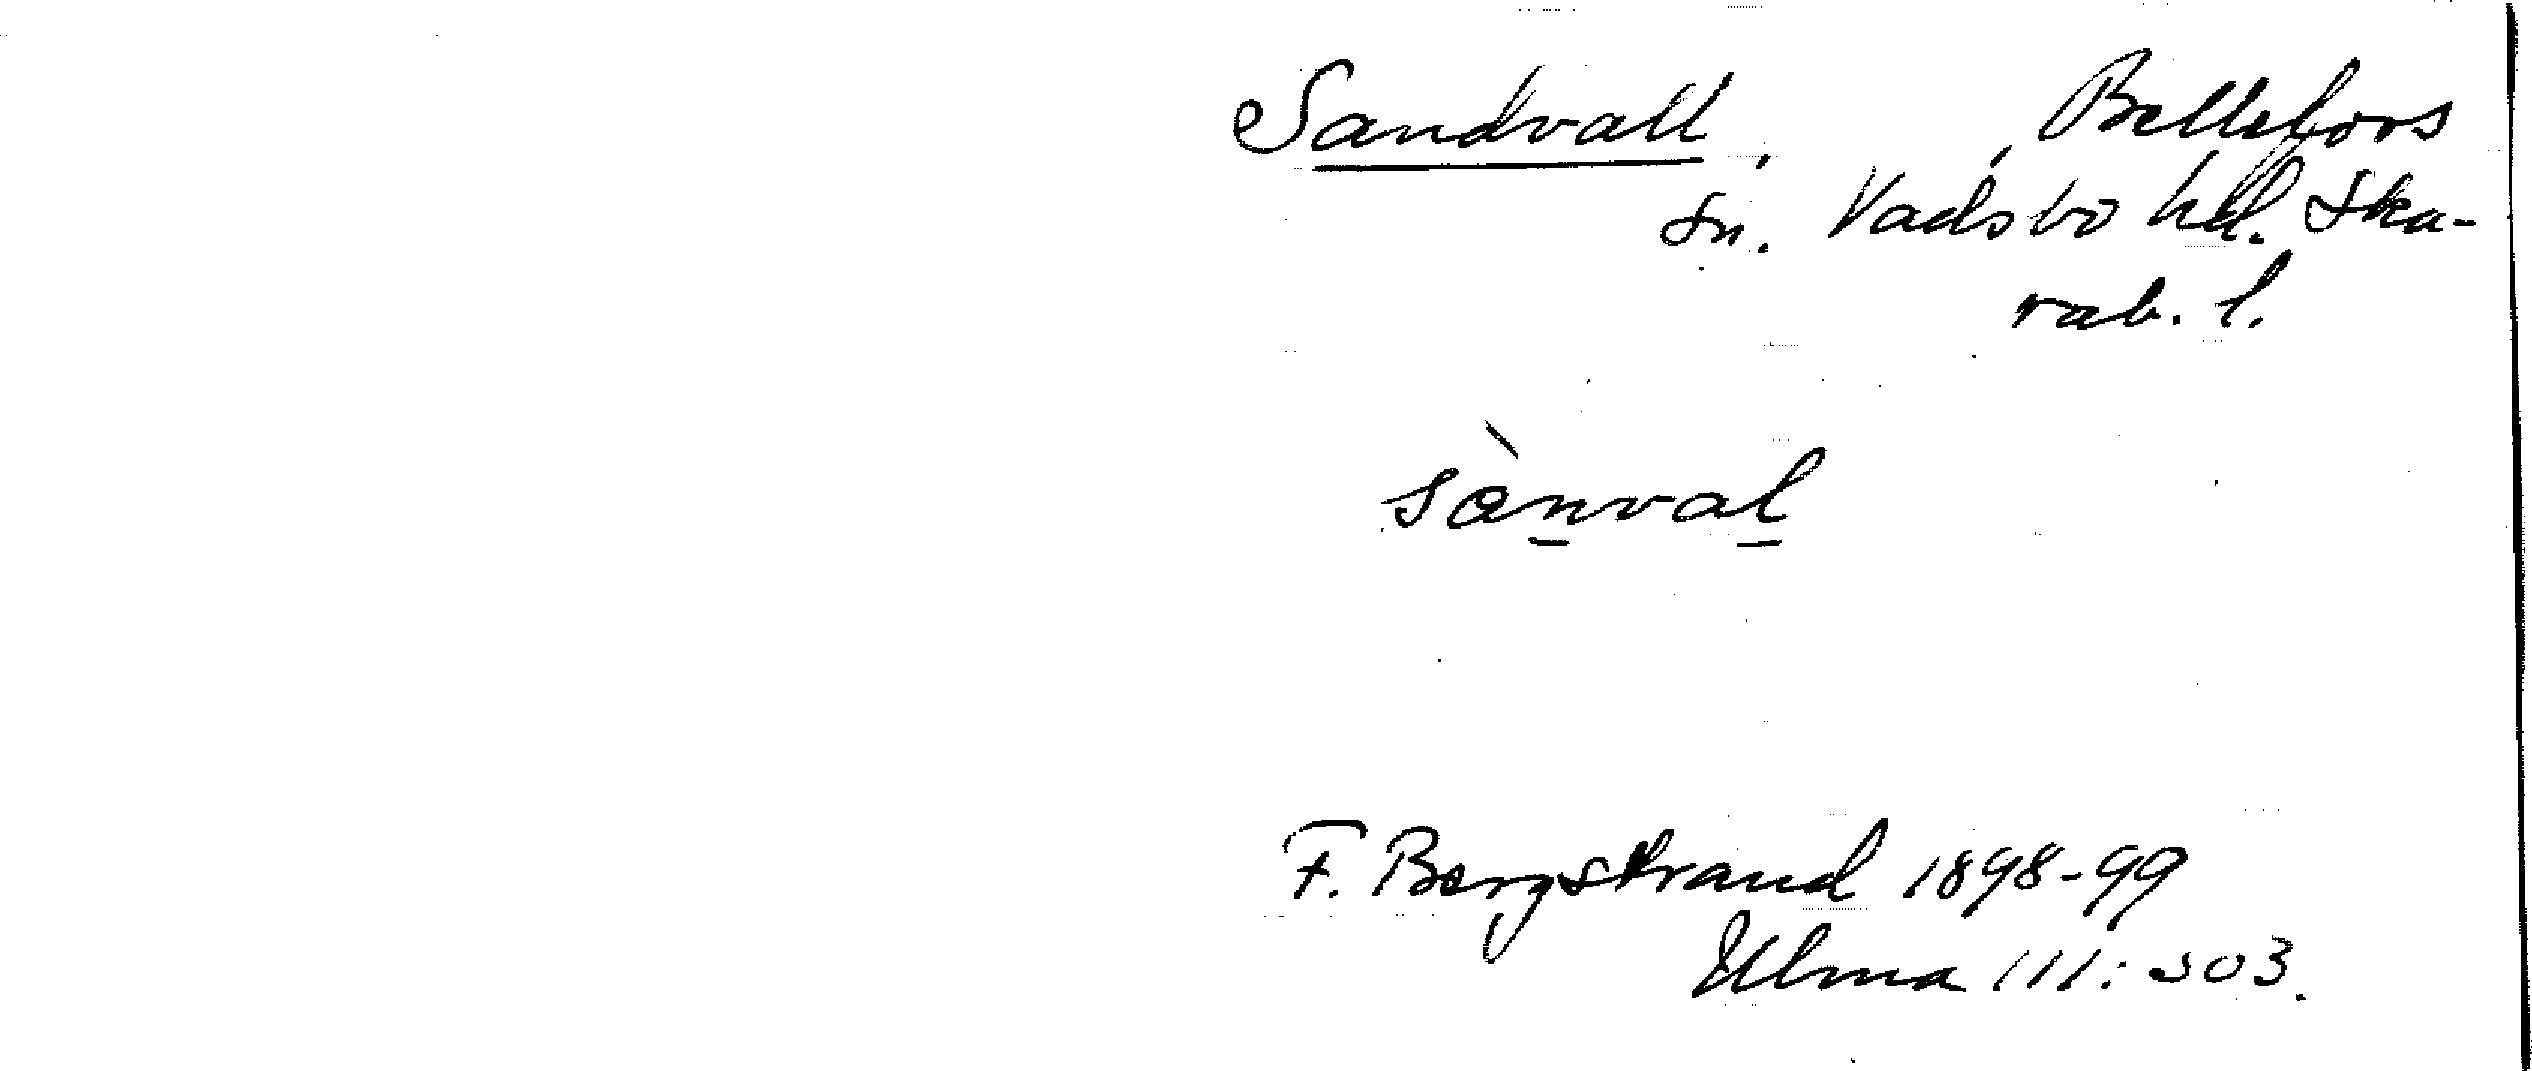 Sandvall, , Bellefors
sn. Vadsbo hd. Ska-
rab. l.
sànval
F. Bergstrand 1898-99
Ulma 111: 303.